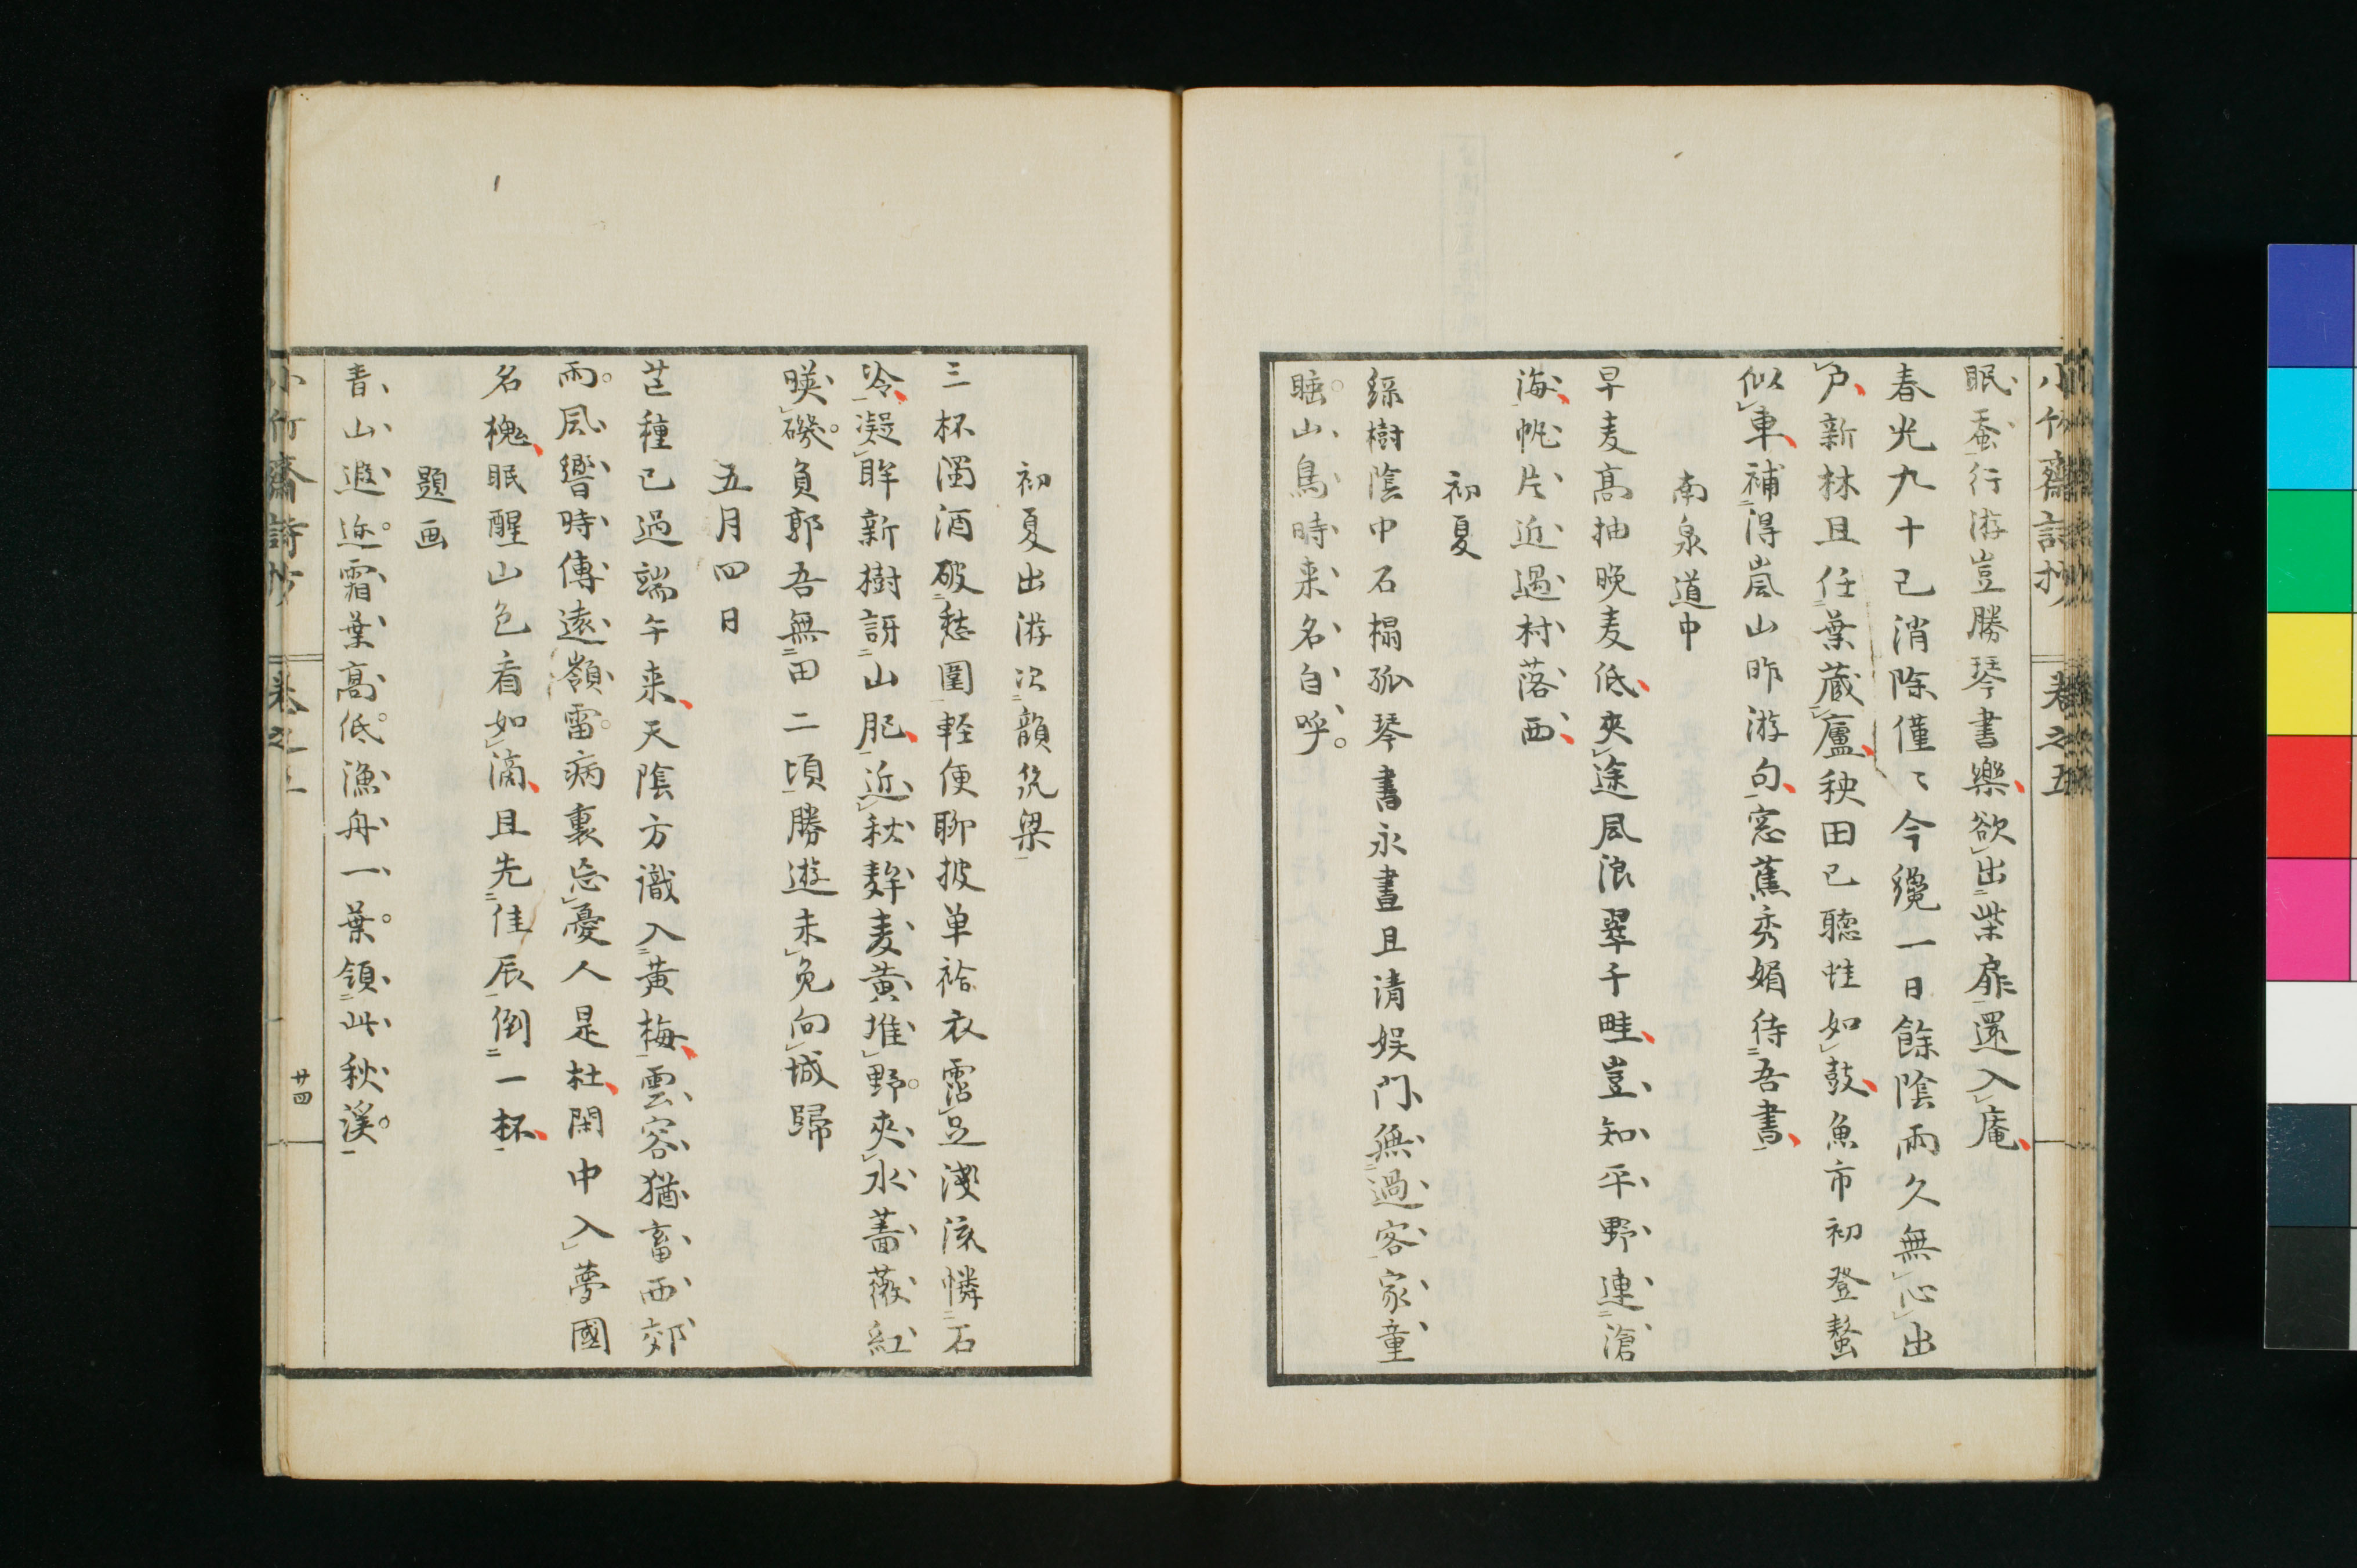 小竹齋詩抄 卷之五
眠蚕行游豈勝琴書樂欲出柴扉還入庵
春光九十已消除僅〻今纔一日餘陰雨久無心出
戶新林且任葉蔵廬秧田已聴蛙如鼓魚市初登鰲
似車補得嵐山昨游句窓蕉秀媚待吾書
南泉道中
早麦高抽晚麦低夾途風浪翠千畦豈知平野連滄
海帆片近過村落西
初夏
緑樹陰中石榻孤琴書永晝且清娱門無過客家童
睡山鳥時来名自呼
初夏出游次韻筑梁
三杯濁酒破愁圍軽便聊披单袷衣霑足淺流憐石
冷凝眸新樹訝山肥近秋麰麦黄堆野夾水薔薇紅
暎磯負郭吾無田二頃勝遊未免向城歸
五月四日
芒種已過端午来天陰方識入黄梅雲容猶畜西郊
雨風響時傳遠嶺雷病裏忘憂人是杜閑中入夢國
名槐眠醒山色看如滴且先佳辰倒一杯
題画
青山遐迩霜葉高低漁舟一葉領此秋溪
小竹齋詩抄 卷之五
廿四